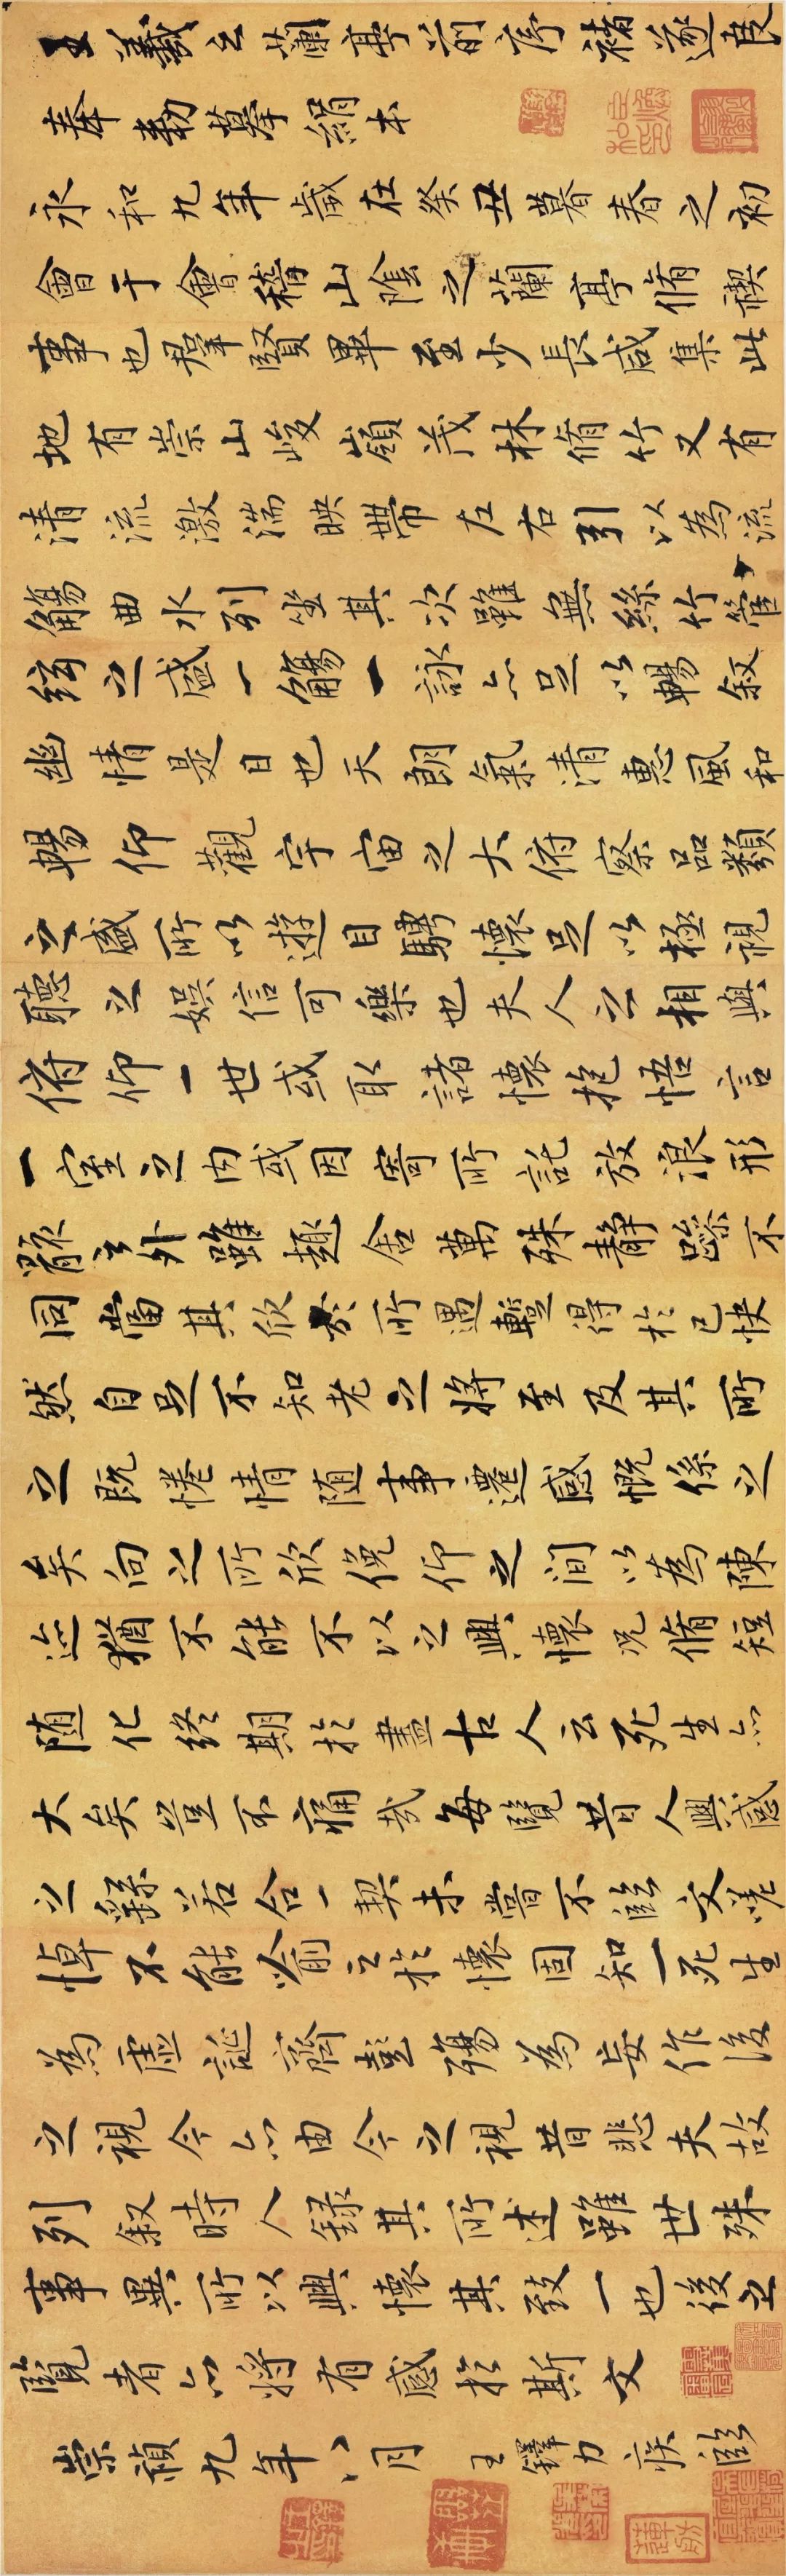 王羲之蘭亭前序褚遂良
奉勅摹絹本
永和九年歲在癸丑暮春之初
會于會稽山陰之蘭亭脩禊
事也群賢畢至少長咸集此
地有崇山峻嶺茂林脩竹又有
清流激湍映帶左右引以為流
觴曲水列坐其次雖無絲竹管
絃之盛一觴一詠亦足以暢叙
幽情是日也天朗氣清惠風和
暢仰觀宇宙之大俯察品類
之盛所以遊目騁懷足以極視
聽之娛信可樂也夫人之相與
俯仰一世或取諸懷抱悟言
一室之内或因寄所託放浪形
骸之外雖趣舍萬殊靜躁不
同當其欣於所遇暫得於己快
然自足不知老之將至及其所
之既惓情隨事遷感慨係之
矣向之所欣俛仰之間以為陳
迹猶不能不以之興懷況脩短
隨化終期於盡古人云死生亦
大矣豈不痛哉每覽昔人興感
之繇若合一契未嘗不臨文嗟
悼不能喻之於懷固知一死生
為虛誕齊彭殤為妄作後
之視今亦由今之視昔悲夫故
列叙時人録其所述雖世殊
事異所以興懷其致一也後之
覽者亦將有感於斯文
崇禎九年八月 王鐸力疾臨